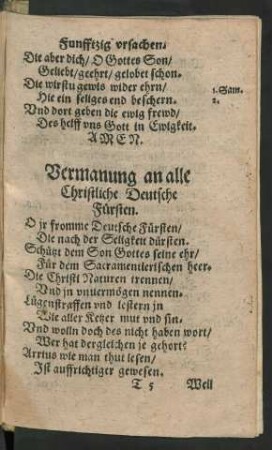 Funfftzig vrsachen.
Die aber dich/ O Gottes Son/
Geliebt/ geehrt/ gelobet schon.
Die wirstu gewis wider ehrn/
1. Sam.
Hie ein seliges end beschern.
2.
Vnd dort geben die ewig frewd/
Des helff vns Gott in Ewigkeit.
AMEN.
Vermanung an alle
Christliche Deutsche
Fürsten.
O jr fromme Deutsche Fürsten/
Die nach der Seligkeit dürsten.
Schützt dem Son Gottes seine ehr/
Für dem Sacramentierischen heer.
Die Christi Naturen trennen/
Vnd jn vnuermögen nennen.
Lügenstraffen vnd lestern jn
Wie aller Ketzer mut vnd sin.
Vnd wolln doch des nicht haben wort/
Wer hat dergleichen je gehort?
Arrius wie man thut lesen/
Ist auffrichtiger gewesen.
T 5 Weil